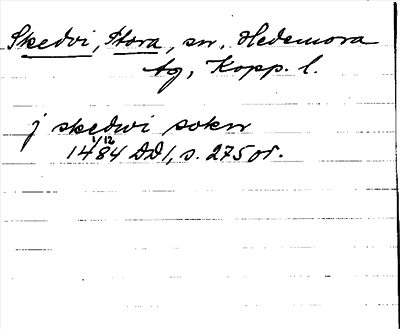 Skedvi, Stora, sn, Hedemora
tg, Kopp. l.
j skedwi sokn
1/12
1484 DD1, s. 275 or.